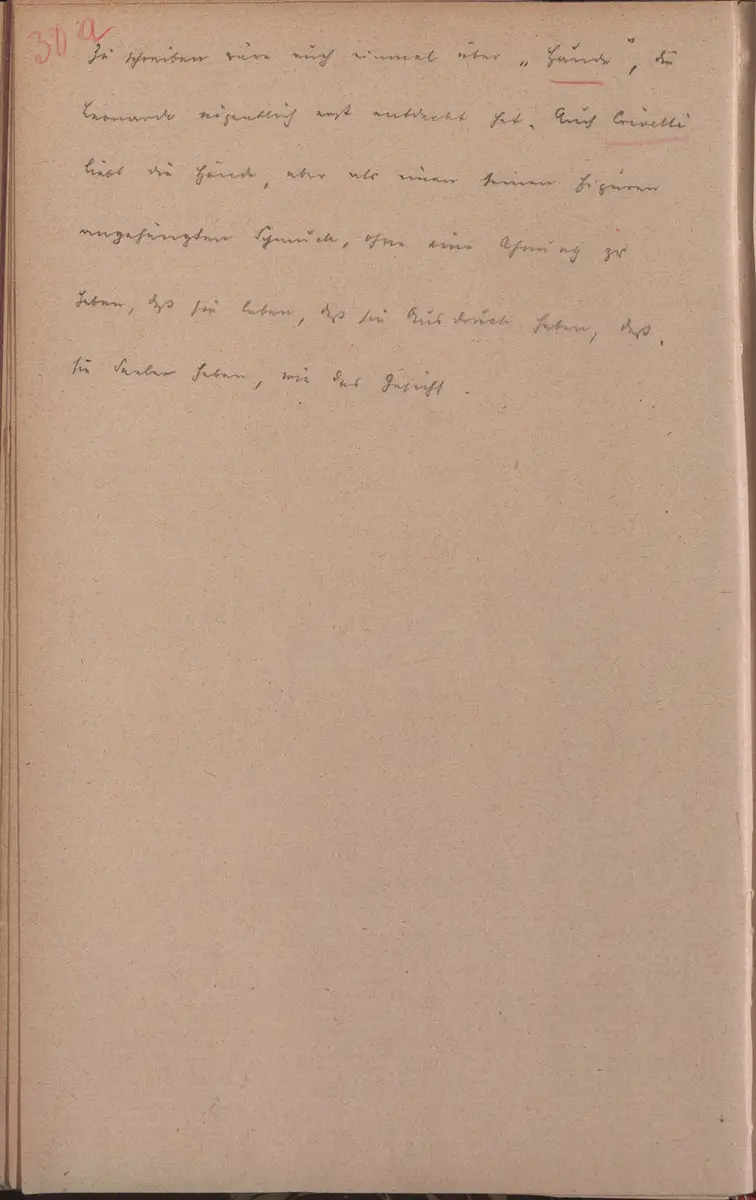 30a
Zu schreiben wäre auch einmal über „Hände", die
Leonardo eigentlich erst entdeckt hat. Auch Crivelli
liebt die Hände, aber als einen seinen Figuren
angehängten Schmuck, ohne eine Ahnung zu
haben, daß sie leben, daß sie Ausdruck haben, daß
sie Seelen haben, wie das Gesicht.